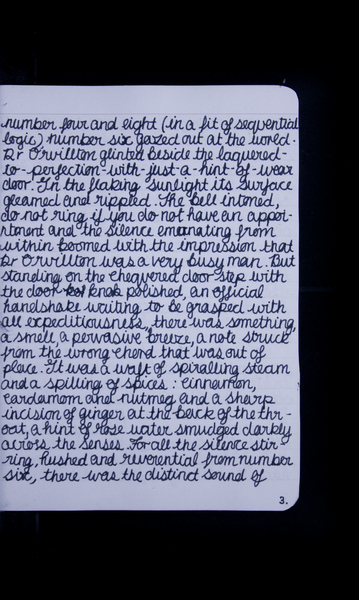 number four and eight (in a fit of sequential
logic) number six gazed out at the world.
Dr Orwillton glinted beside the laquered-
to-perfection-with-just-a-hint-of-wear
door. In the flaking sunlight its surface
gleamed and rippled. The bell intoned,
do not ring if you do not have an appoi-
ntment and the silence emanating from
within boomed with the impression that
Dr Orwillton was a very busy man. But
standing on the chequered door step with
the door knob polished, an official
handshake waiting to be grasped with
all expeditiousness, there was something,
a smell, a pervasive breeze, a note struck
from the wrong chord that was out of
place. It was a waft of spiralling steam
and a spilling of spices: cinnamon,
cardamom and nutmeg and a sharp
incision of ginger at the back of the thr-
oat, a hint of rose water smudged darkly
across the senses. For all the silence stir-
ring, hushed and reverential from number
six, there was the distinct sound of
3.